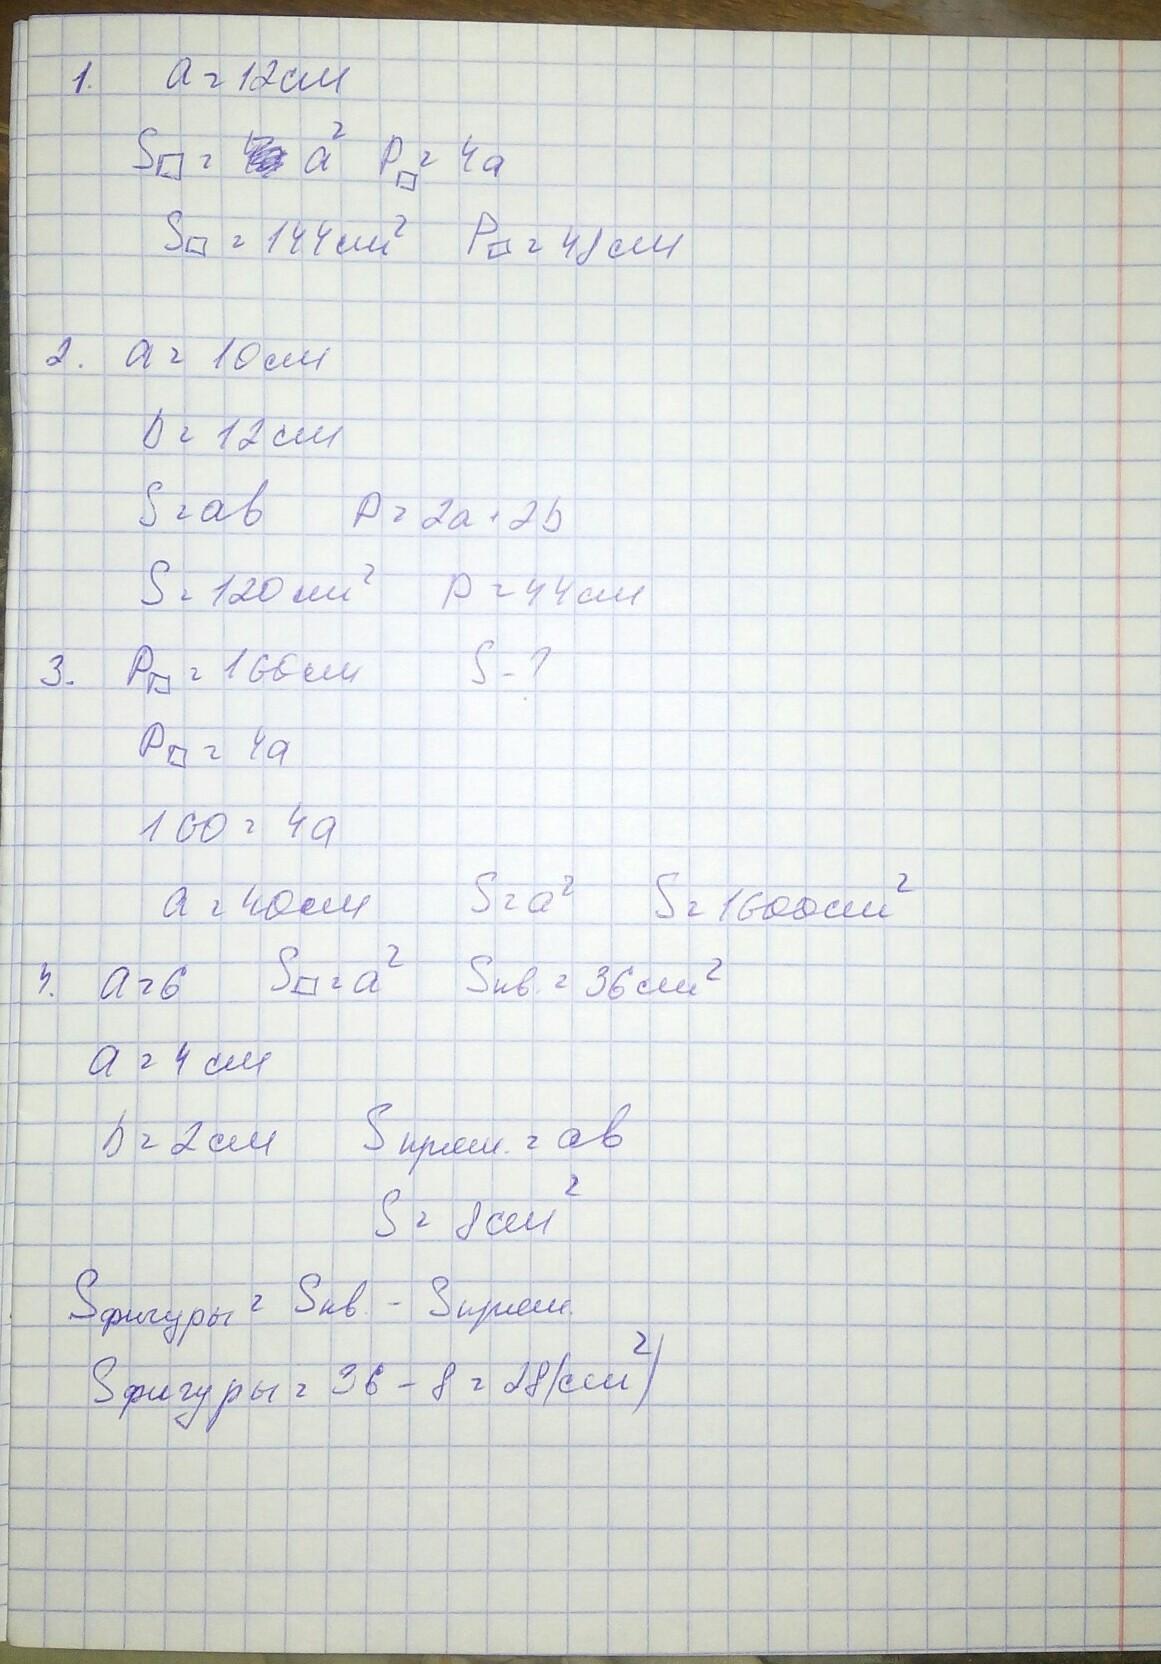 1. a = 12 см
S□ = a² P□ = 4a
S□ = 144 см² P□ = 48 см
2. a = 10 см
b = 12 см
S = ab P = 2a + 2b
S = 120 см² P = 44 см
3. P□ = 160 см S - ?
P□ = 4a
160 = 4a
a = 40 см S = a² S = 1600 см²
4. a = 6 S□ = a² Sкв. = 36 см²
a = 4 см
b = 2 см Sпрям. = ab
S = 8 см²
Sфигуры = Sкв. - Sпрям.
Sфигуры = 36 - 8 = 28 (см²)